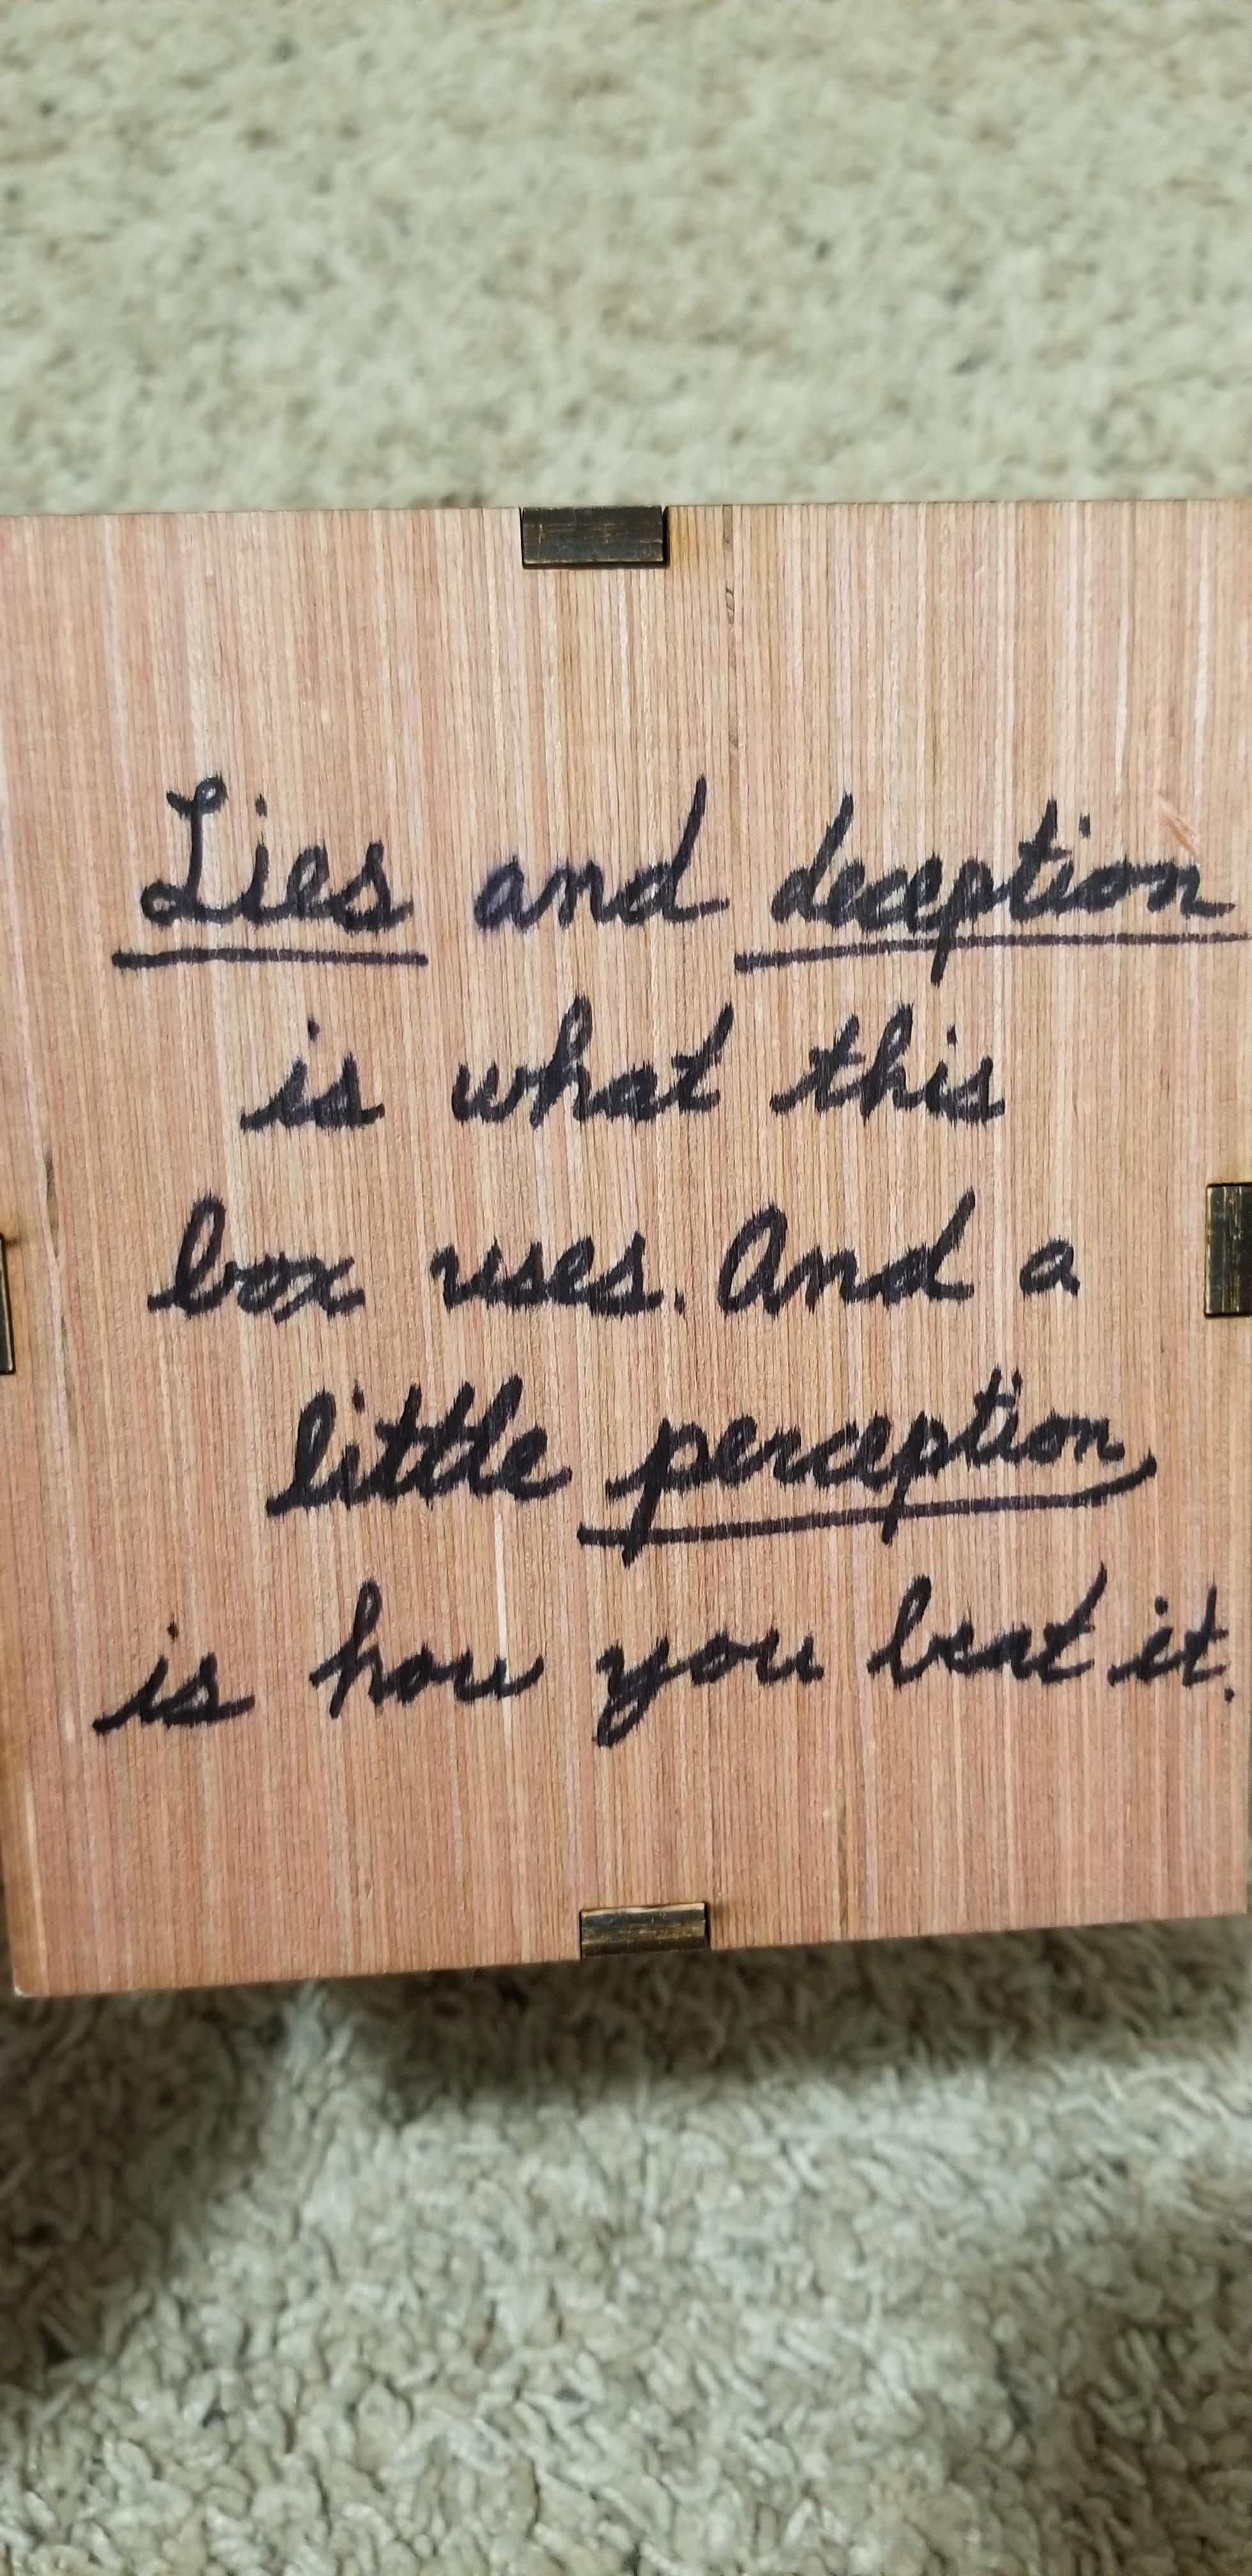 Lies and deception
is what this
box uses. And a
little perception
is how you beat it.